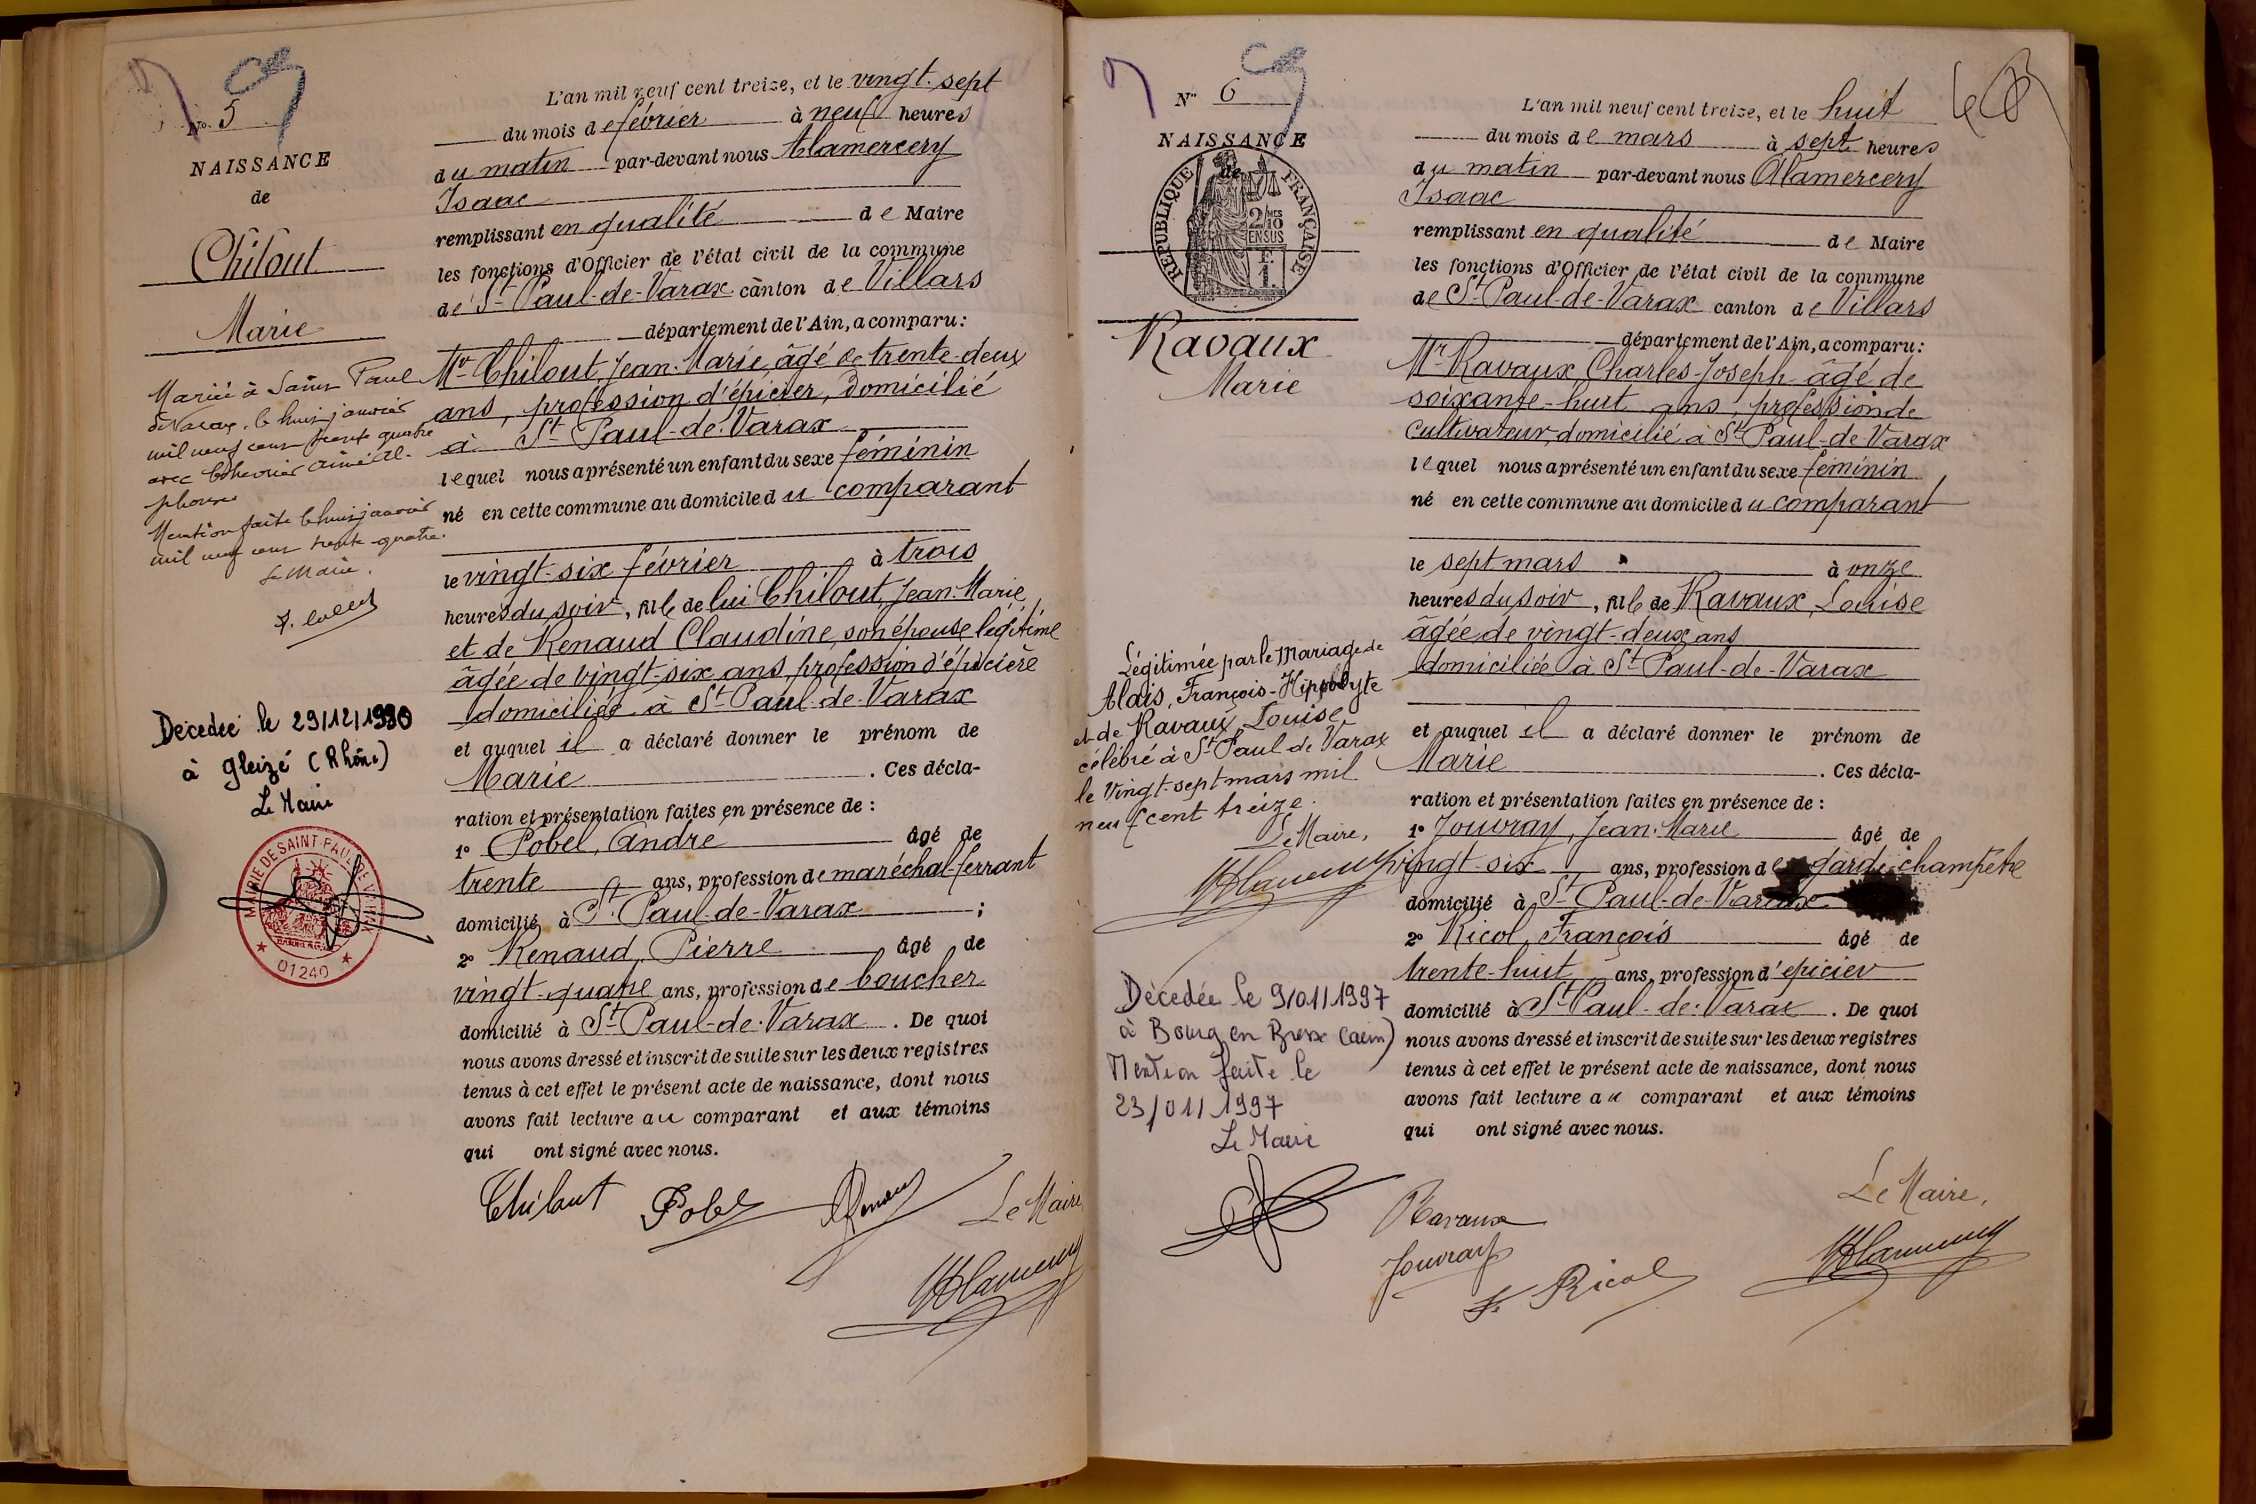 No. 5
NAISSANCE
de
Chilout
Marie
Mariée à Saint Paul
de Varax, le huit janvier
mil neuf cent trente quatre
avec
Mention faite le huit janvier
mil neuf cent trente-quatre.
Le Maire.
Décédée le 29/12/1990
à Gleizé (Rhône)
Le Maire
MAIRIE DE SAINT PAUL DE VARAX
01240
L'an mil neuf cent treize, et le vingt-sept
du mois de février à neuf heures
du matin par-devant nous Alamercery
Isaac
remplissant en qualité de Maire
les fonctions d'Officier de l'état civil de la commune
de St Paul-de-Varax canton de Villars
département de l'Ain, a comparu:
Mr Chilout, Jean-Marie, âgé de trente-deux
ans, profession d'épicier, domicilié
à St Paul-de-Varax
lequel nous a présenté un enfant du sexe féminin
né en cette commune au domicile du comparant
le vingt-six février à trois
heures du soir, fille de lui Chilout, Jean-Marie,
et de Renaud Claudine, son épouse légitime
âgée de vingt-six ans, profession d'épicière
domiciliée à St Paul-de-Varax
et auquel il a déclaré donner le prénom de
Marie. Ces décla-
ration et présentation faites en présence de :
1° Pobel, André âgé de
trente ans, profession de maréchal-ferrant
domicilié à St Paul-de-Varax ;
2° Renaud, Pierre âgé de
vingt-quatre ans, profession de boucher
domicilié à St Paul-de-Varax. De quoi
nous avons dressé et inscrit de suite sur les deux registres
tenus à cet effet le présent acte de naissance, dont nous
avons fait lecture au comparant et aux témoins
qui ont signé avec nous.
Chilout Pobel Renaud Le Maire
N° 6
NAISSANCE
de
RÉPUBLIQUE FRANÇAISE
2/10 MES
EN SUS
F.
1.
Ravaux
Marie
Légitimée par le Mariage de
Alais, François-Hippolyte
et de Ravaux, Louise
célébré à St Paul de Varax
le Vingt-sept mars mil
neuf cent treize.
Le Maire,
Décédée le 9/01/1997
à Bourg en Bresse (ain)
Mention faite le
23/01/1997
Le Maire
L'an mil neuf cent treize, et le huit
du mois de mars à sept heures
du matin par-devant nous Alamercery
Isaac
remplissant en qualité de Maire
les fonctions d'Officier de l'état civil de la commune
de St Paul-de-Varax canton de Villars
département de l'Ain, a comparu:
Mr Ravaux Charles-Joseph âgé de
soixante-huit ans, profession de
cultivateur, domicilié à St Paul-de-Varax
lequel nous a présenté un enfant du sexe féminin
né en cette commune au domicile du comparant
le sept mars à onze
heures du soir, fille de Ravaux, Louise
âgée de vingt-deux ans
domiciliée à St Paul-de-Varax
et auquel il a déclaré donner le prénom de
Marie. Ces décla-
ration et présentation faites en présence de :
1° Jouvray, Jean-Marie âgé de
vingt-six ans, profession de garde-champêtre
domicilié à St Paul-de-Varax
2° Ricol, François âgé de
trente-huit ans, profession d'épicier
domicilié à St Paul-de-Varax. De quoi
nous avons dressé et inscrit de suite sur les deux registres
tenus à cet effet le présent acte de naissance, dont nous
avons fait lecture au comparant et aux témoins
qui ont signé avec nous.
Le Maire,
Ravaux
Jouvray
F. Ricol